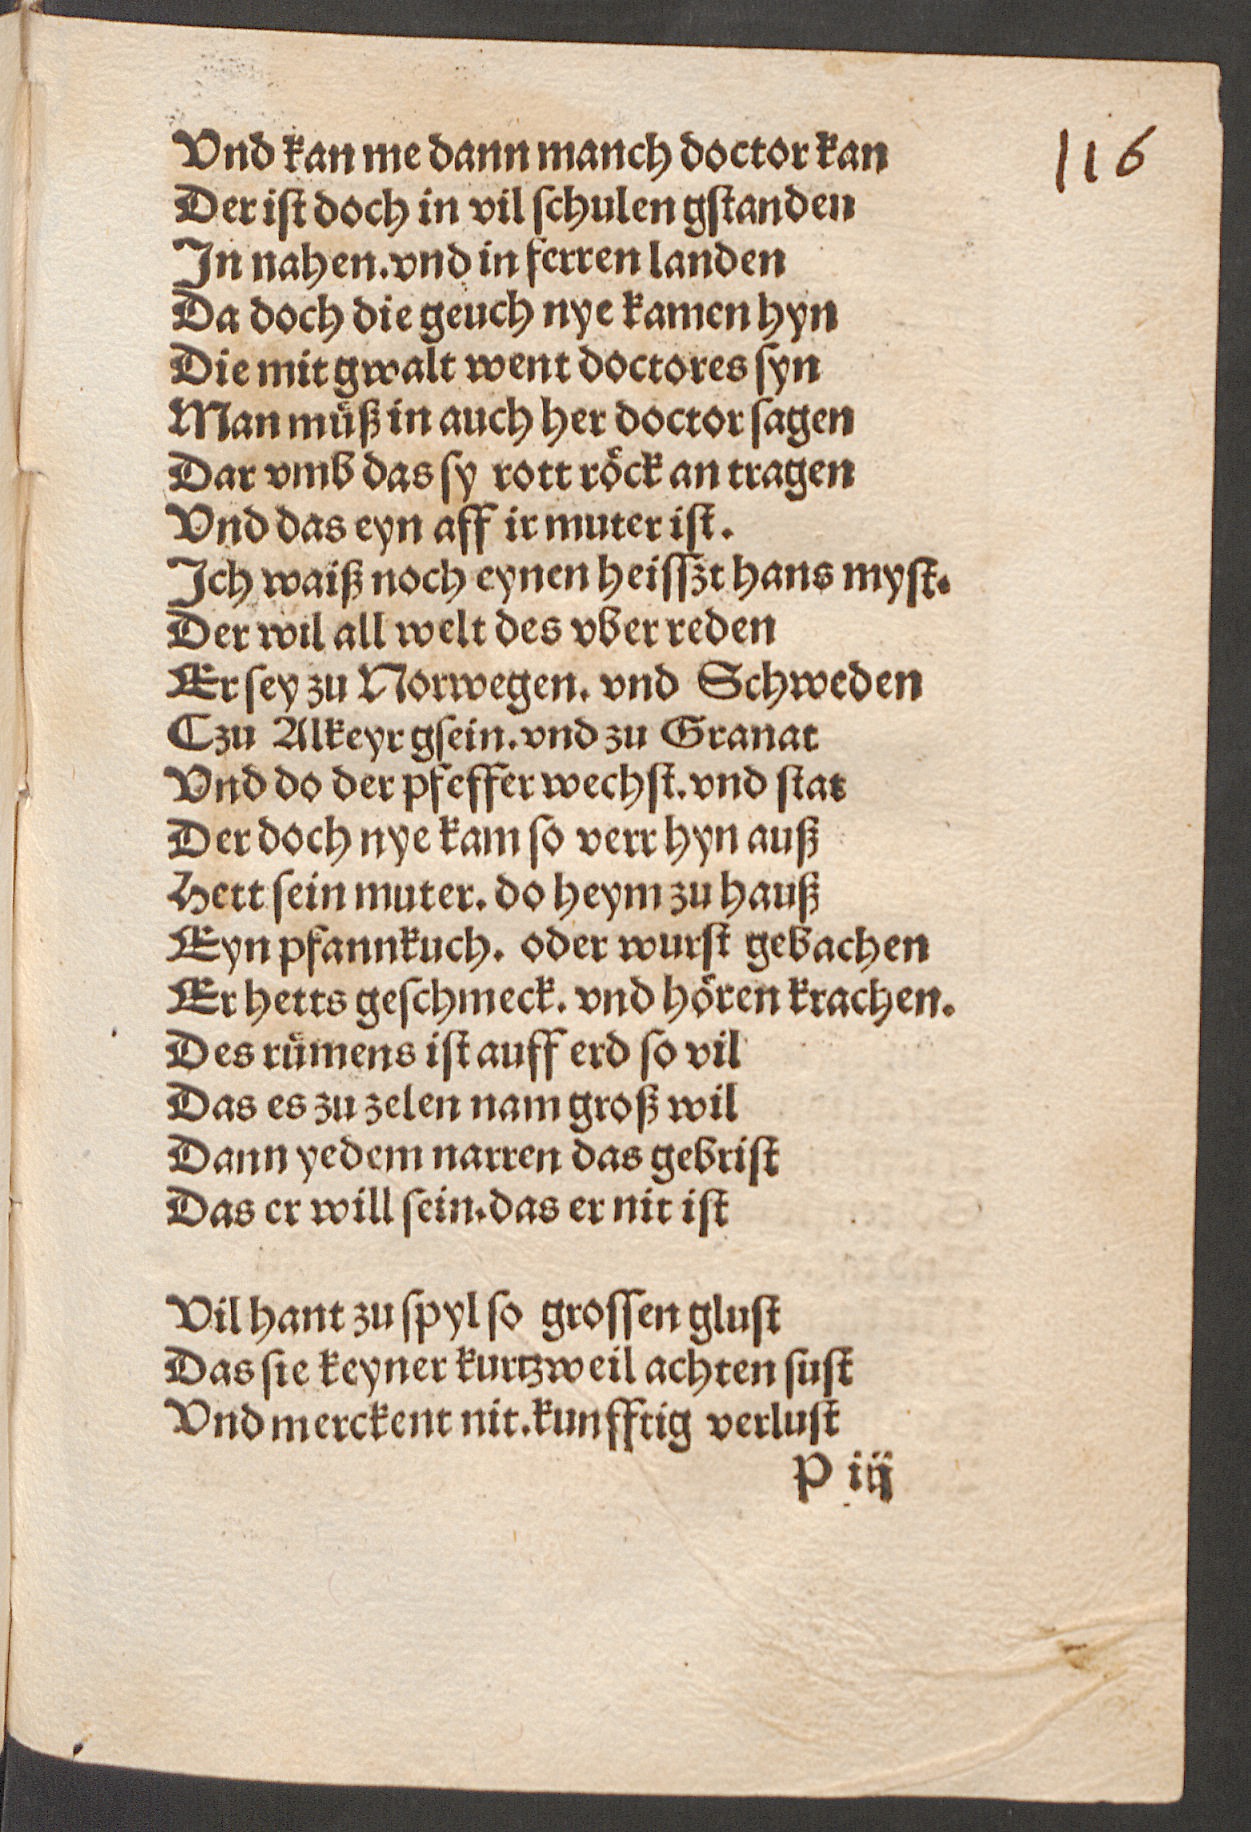 116
Vnd kan me dann manch doctor kan
Der iſt doch in vil ſchulen gſtanden
In nahen. vnd in ferren landen
Da doch die geuch nye kamen hyn
Die mit gwalt went doctores ſyn
Man muͤß in auch her doctor ſagen
Dar vmb das ſy rott roͤck an tragen
Vnd das eyn aff ir muter iſt.
Ich waiß noch eynen heiſſzt hans myſt.
Der wil all welt des vber reden
Er ſey zu Norwegen. vnd Schweden
Czu Alkeyr gſein. vnd zu Granat
Vnd do der pfeffer wechſt. vnd ſtat
Der doch nye kam ſo verr hyn auß
Hett ſein muter. do heym zu hauß
Eyn pfannkuch. oder wurſt gebachen
Er hetts geſchmeck. vnd hoͤren krachen.
Des ruͤmens iſt auff erd ſo vil
Das es zu zelen nam groß wil
Dann yedem narren das gebriſt
Das er will ſein. das er nit iſt
Vil hant zu ſpyl ſo groſſen gluſt
Das ſie keyner kurtzweil achten ſuſt
Vnd merckent nit. kunfftig verluſt
P iij